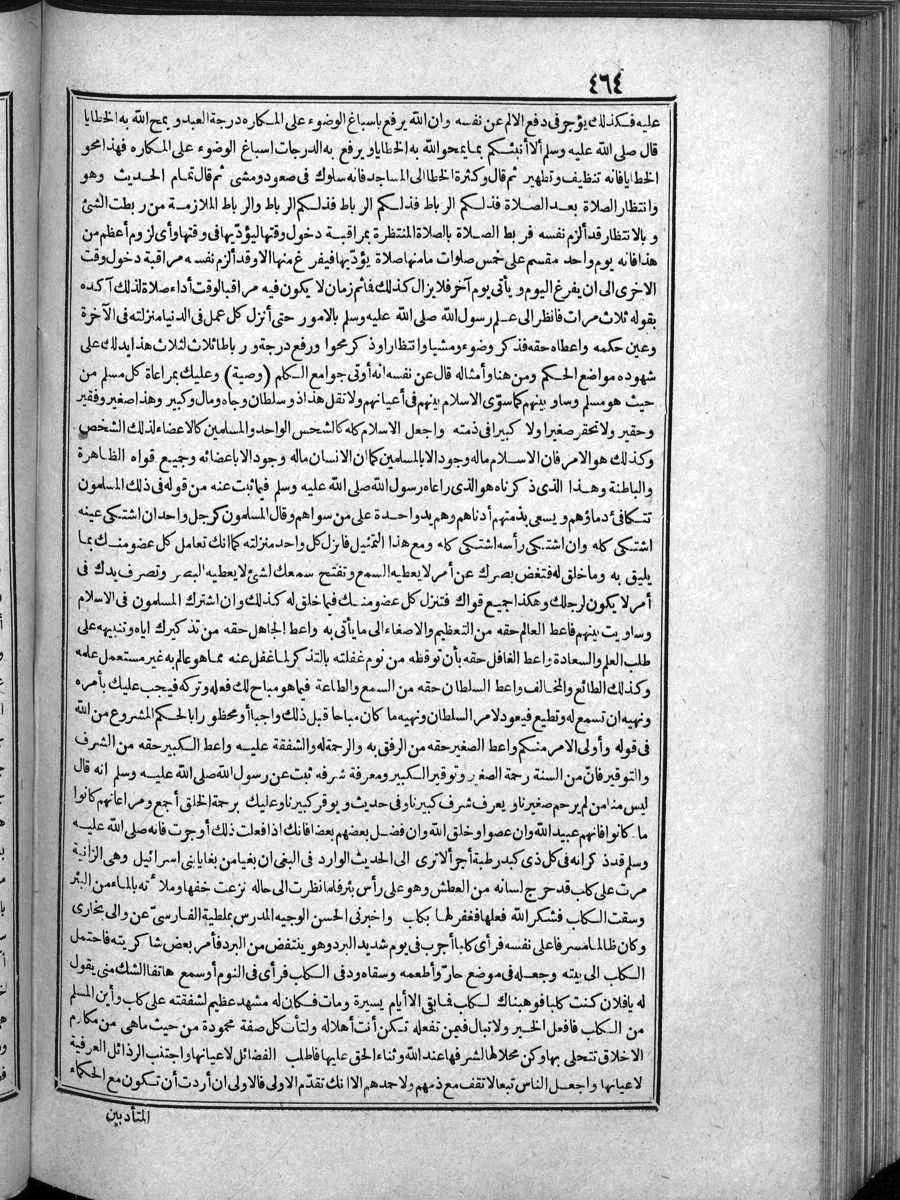 ٤٦٤
عليه فكذلك يؤجر فى دفع الالم عن نفسه وان الله يرفع باسباغ الوضوء على المكاره درجة العبد ويمح الله به الخطايا
قال صلى الله عليه وسلم ألا أنبئكم بما يمحو الله به الخطايا ويرفع به الدرجات اسباغ الوضوء على المكاره فهذا محو
الخطايا فانه تنظيف وتطهير ثم قال وكثرة الخطا الى المساجد فانه سلوك فى صعود ومشى ثم قال تمام الحديث وهو
وانتظار الصلاة بعد الصلاة فذلكم الرباط فذلكم الرباط فذلكم الرباط والرباط الملازمة من ربطت الشئ
وبالانتظار قد ألزم نفسه فربط الصلاة بالصلاة المنتظرة بمراقبة دخول وقتها ليؤدّيها فى وقتها وأى لزوم أعظم من
هذا فانه يوم واحد مقسم على خمس صلوات ما منها صلاة يؤدّيها فيفرغ منها الا وقد ألزم نفسه مراقبة دخول وقت
الاخرى الى ان يفرغ اليوم ويأتى يوم آخر فلا يزال كذلك فما ثم زمان لا يكون فيه مراقبا لوقت أداء صلاة لذلك آكده
بقوله ثلاث مرات فانظر الى علم رسول الله صلى الله عليه وسلم بالامور حتى أنزل كل عمل فى الدنيا منزلته فى الآخرة
وعين حكمه واعطاه حقه فذكر وضوء ومشيا وانتظارا وذكر محوا ورفع درجة ورباطا ثلاث لثلاث هذا يدلك على
شهوده مواضع الحكم ومن هنا وأمثاله قال عن نفسه انه أوتى جوامع الكلم (وصية) وعليك بمراعاة كل مسلم من
حيث هو مسلم وساو بينهم كما سوّى الاسلام بينهم فى أعيانهم ولا تقل هذا ذو سلطان وجاه ومال وكبير وهذا صغير وفقير
وحقير ولا تحقر صغيرا ولا كبيرا فى ذمته واجعل الاسلام كله كالشخص الواحد والمسلمين كالاعضاء لذلك الشخص
وكذلك هو الامر فان الاسلام ماله وجود الا بالمسلمين كما ان الانسان ماله وجود الا باعضائه وجميع قواه الظاهرة
والباطنة وهذا الذى ذكرناه هو الذى راعاه رسول الله صلى الله عليه وسلم فيما ثبت عنه من قوله فى ذلك المسلمون
تتكافئ دماؤهم ويسعى بذمتهم أدناهم وهم يد واحدة على من سواهم وقال المسلمون كرجل واحد ان اشتكى عينه
اشتكى كله وان اشتكى رأسه اشتكى كله ومع هذا التمثيل فانزل كل واحد منزلته كما انك تعامل كل عضو منك بما
يليق به وما خلق له فتغض بصرك عن أمر لا يعطيه السمع وتفتح سمعك لشئ لا يعطيه البصر وتصرف يدك فى
أمر لا يكون لرجلك وهكذا جميع قواك فتنزل كل عضو منك فيما خلق له كذلك وان اشترك المسلمون فى الاسلام
وساويت بينهم فاعط العالم حقه من التعظيم والاصغاء الى ما يأتى به واعط الجاهل حقه من تذكيرك اياه وتنبيهه على
طلب العلم والسعادة واعط الغافل حقه بأن توقظه من نوم غفلته بالتذكر لما غفل عنه مما هو عالم به غير مستعمل علمه
وكذلك الطائع والمخالف واعط السلطان حقه من السمع والطاعة فيما هو مباح لك فعله وتركه فيجب عليك بأمره
ونهيه ان تسمع له وتطيع فيعود لامر السلطان ونهيه ما كان مباحا قبل ذلك واجبا أو محظورا بالحكم المشروع من الله
فى قوله وأولى الامر منكم واعط الصغير حقه من الرفق به والرحمة له والشفقة عليه واعط الكبير حقه من الشرف
والتوقير فانّ من السنة رحمة الصغير وتوقير الكبير ومعرفة شرفه ثبت عن رسول الله صلى الله عليه وسلم انه قال
ليس منا من لم يرحم صغيرنا ويعرف شرف كبيرنا وفى حديث ويوقر كبيرنا وعليك برحمة الخلق أجمع ومراعاتهم كانوا
ما كانوا فانهم عبيد الله وان عصوا وخلق الله وان فضل بعضهم بعضا فانك اذا فعلت ذلك أوجرت فانه صلى الله عليه
وسلم قد ذكر انه فى كل ذى كبد رطبة أجر ألا ترى الى الحديث الوارد فى البغى ان بغيا من بغايا بنى اسرائيل وهى الزانية
مرت على كلب قد خرج لسانه من العطش وهو على رأس بئر فلما نظرت الى حاله نزعت خفها وملأته بالماء من البئر
وسقت الكلب فشكر الله فعلها فغفر لها بكلب واخبرنى الحسن الوجيه المدرس بملطية الفارسىّ عن والى بخارى
وكان ظالما مسرفا على نفسه فرأى كلبا أجرب فى يوم شديد البرد وهو ينتفض من البرد فأمر بعض شاكريته فاحتمل
الكلب الى بيته وجعله فى موضع حارّ وأطعمه وسقاه ودفى الكلب فرأى فى النوم أو سمع هاتفا الشك منى يقول
له يا فلان كنت كلبا فوهبناك لكلب فما بقى الا أيام يسيرة ومات فكان له مشهد عظيم لشفقته على كلب وأين المسلم
من الكلب فافعل الخير ولا تبال فيمن تفعله تكن أنت أهلا له ولتأت كل صفة محمودة من حيث ما هى من مكارم
الاخلاق تتحلى بها وكن محلا لها لشرفها عند الله وثناء الحق عليها فاطلب الفضائل لاعيانها واجتنب الرذائل العرفية
لاعيانها واجعل الناس تبعا لا تقف مع ذمهم ولا حمدهم الا انك تقدّم الاولى فالاولى ان أردت أن تكون مع الحكماء
المتأدبين